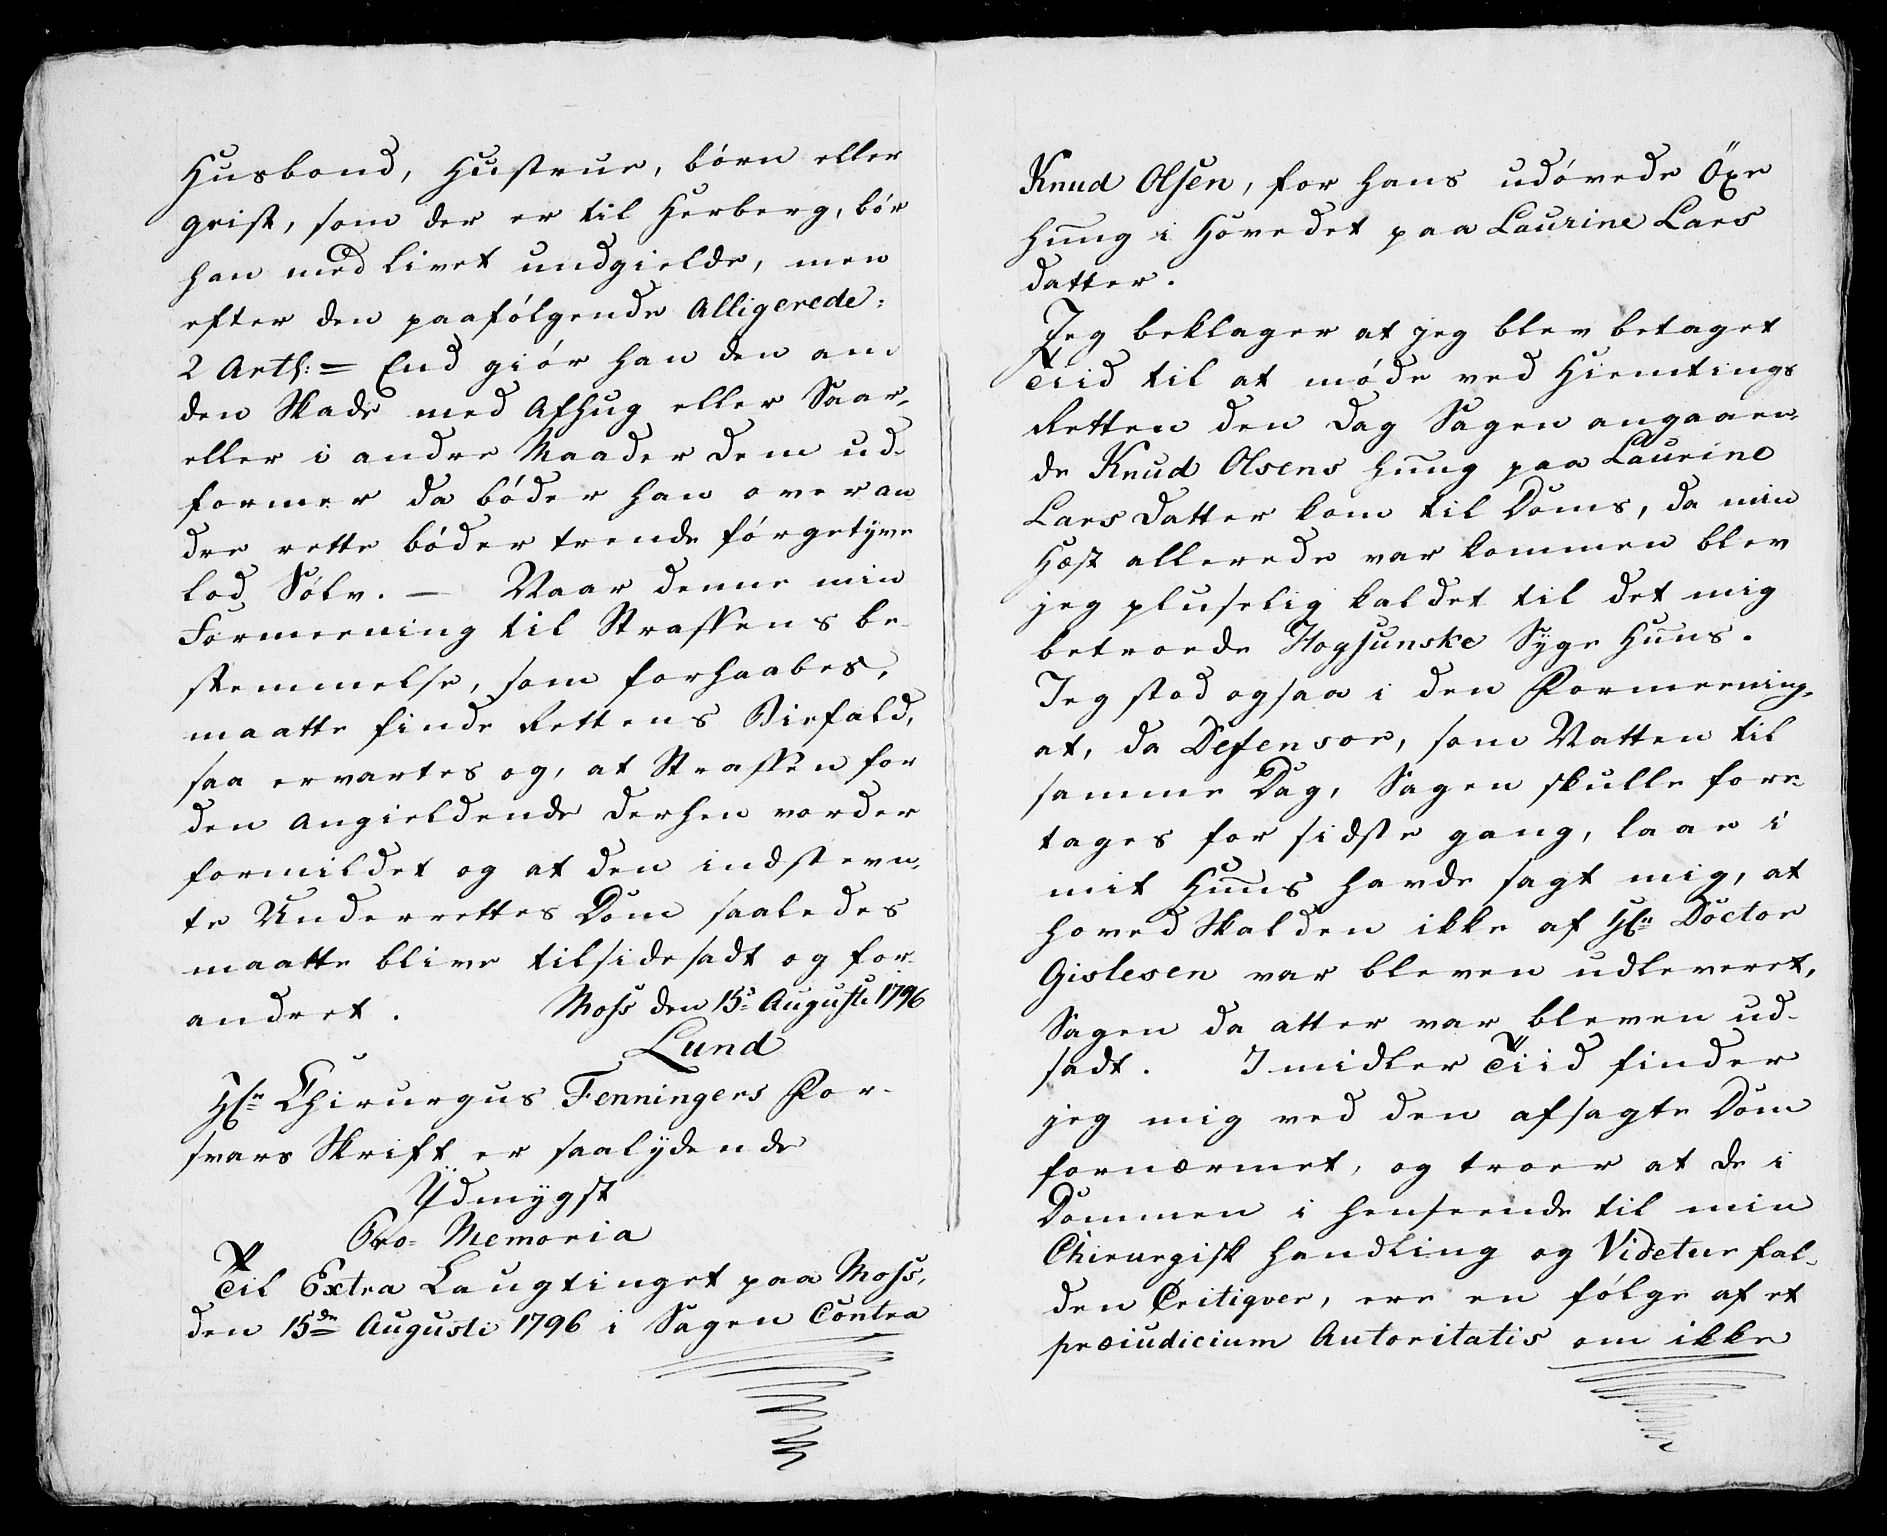 Husbond, Hustrue, børn eller
geist, som der er til Herberg, bør
han med livet undgielde, men
efter den paafølgende Alligerede:
2 Artl: = End giør han den an
den Skade med Afhug eller Saar,
eller i andre Maader dem ud-
former da bøder han over an
dre rette bøder trende førgetyve
lod Sølv. — Naar denne min
Formeening til Straffens be-
stemmelse, som forhaabes,
maatte finde Rettens Biefald,
saa ervartes og, at Straffen for
den Angieldende derhen vorder
formildet og at den indstevn-
te Underrettes Dom saaledes
maatte blive tilsidesadt og for-
andret. Moss den 15de Augusti 1796
Lund
Hr Chirurgus Fenningers For-
svars Skrift er saalydende
Ydmygst
Pro-Memoria
Til Extra Laugtinget paa Moss,
den 15de Augusti 1796 i Sagen Contra
Knud Olsen, for hans udøvede Öxe
hug i Hovedet paa Laurine Lars
datter.
Jeg beklager at jeg blev betaget
Tiid til at møde ved Hiemtings
Retten den Dag Sagen angaaen
de Knud Olsens hug paa Laurine
Lars Datter kom til Doms, da min
Hest allerede var kommen blev
jeg pluselig kaldet til det mig
betroede Hogsunske Syge Huus.
Jeg stod ogsaa i den Formeening,
at, da Defensor, som Natten til
samme Dag, Sagen skulle fore-
tages for sidste gang, laae i
mit Huus havde sagt mig, at
hoved Skalden ikke af Hr Doctor
Gislesen var bleven udleveret,
Sagen da atter var bleven ud-
sadt. Imidler Tiid finder
jeg mig ved den afsagte Dom
fornærmet, og troer at de i
Dommen i henseende til min
Chirurgisk handling og Videtur fal-
den Critiqver, ere en følge af et
præiudicium Autoritatis om ikke